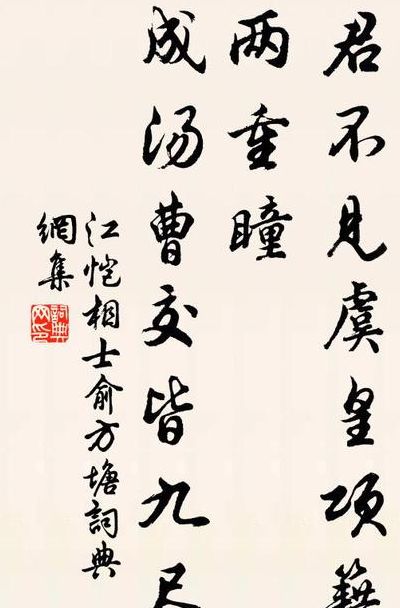 君不见虞皇项籍
两重瞳
成汤曹交皆九尺
江恺相士俞方塘詞典
網集
詞典网印